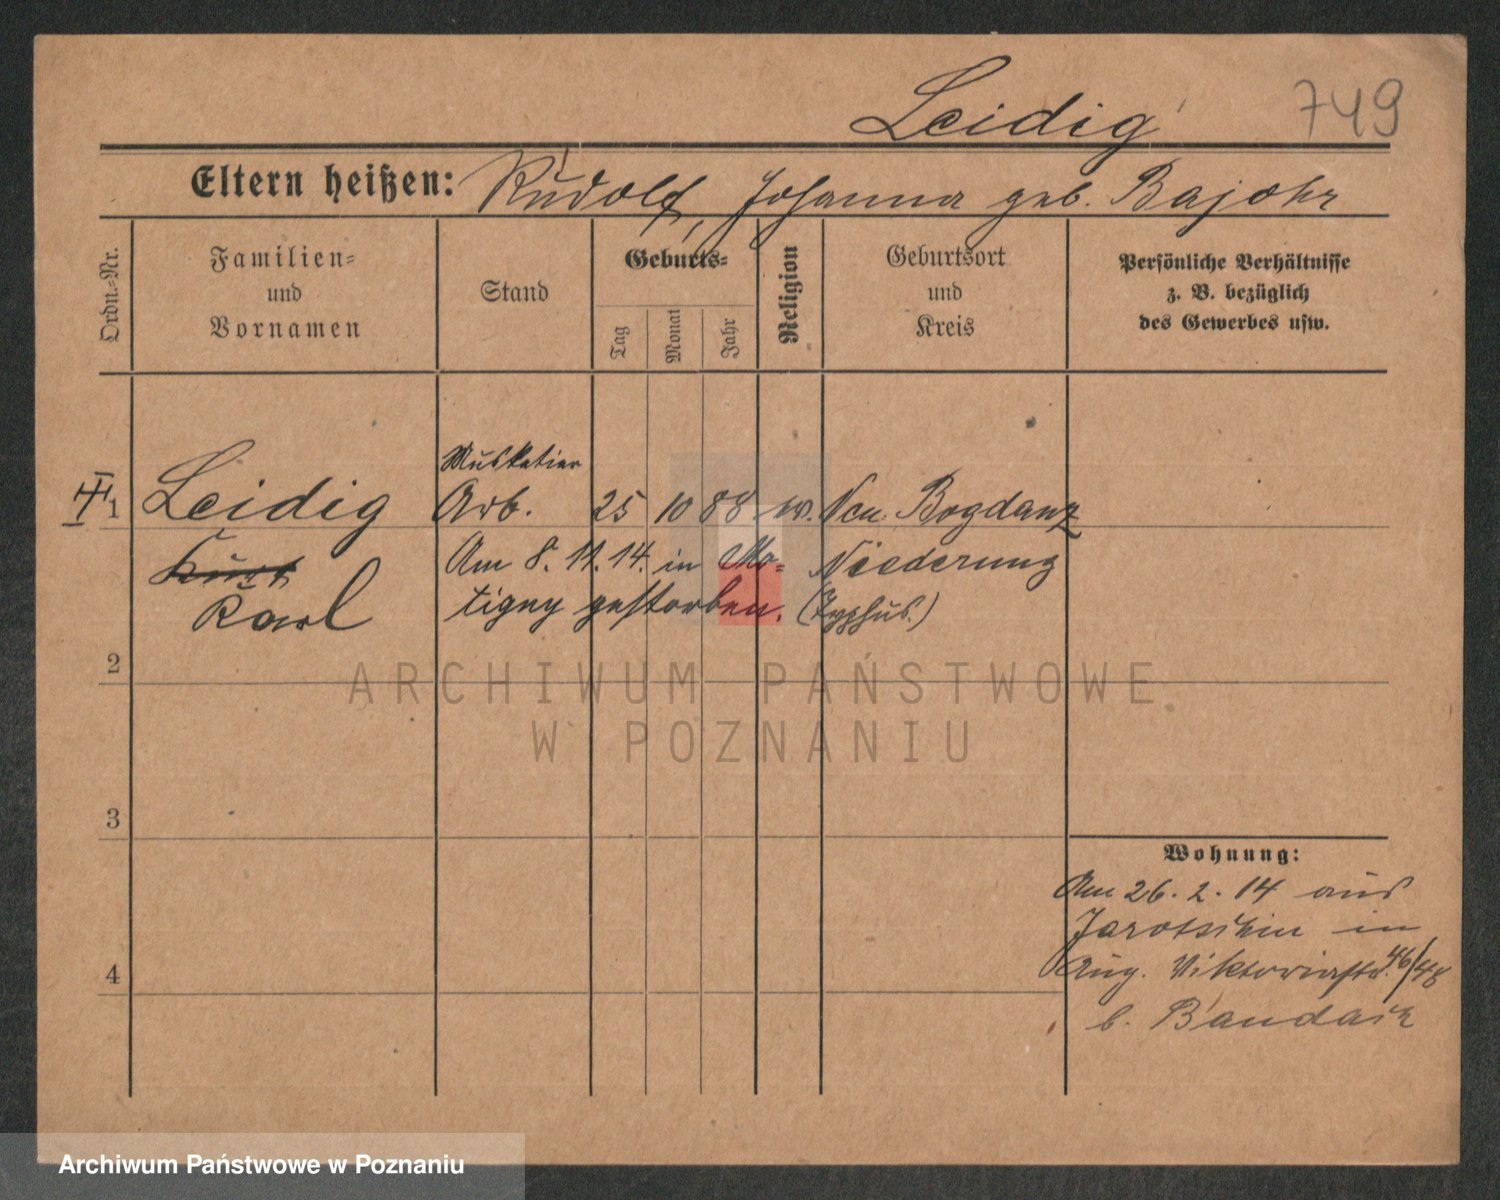 Leidig 749
Eltern heißen: Rudolf, Johanna geb. Bajohr
Ordn.=Nr.
Familien=
und
Vornamen
Stand
Geburts=
Tag
Monat
Jahr
Religion
Geburtsort
und
Kreis
Persönliche Verhältnisse
z. B. bezüglich
des Gewerbes usw.
Musketier
1 Leidig Arb. 25 10 88 w. Neu Bogdanz
Kurt Am 8. 11. 14. in Mo= Niederung
Karl tigny gestorben. (Typhus.)
2
3
4
Wohnung:
Am 26. 2. 14 aus
Jarotschin in
Aug. Viktoriastr. 46/48
b.
ARCHIWUM PAŃSTWOWE
W POZNANIU
Archiwum Państwowe w Poznaniu